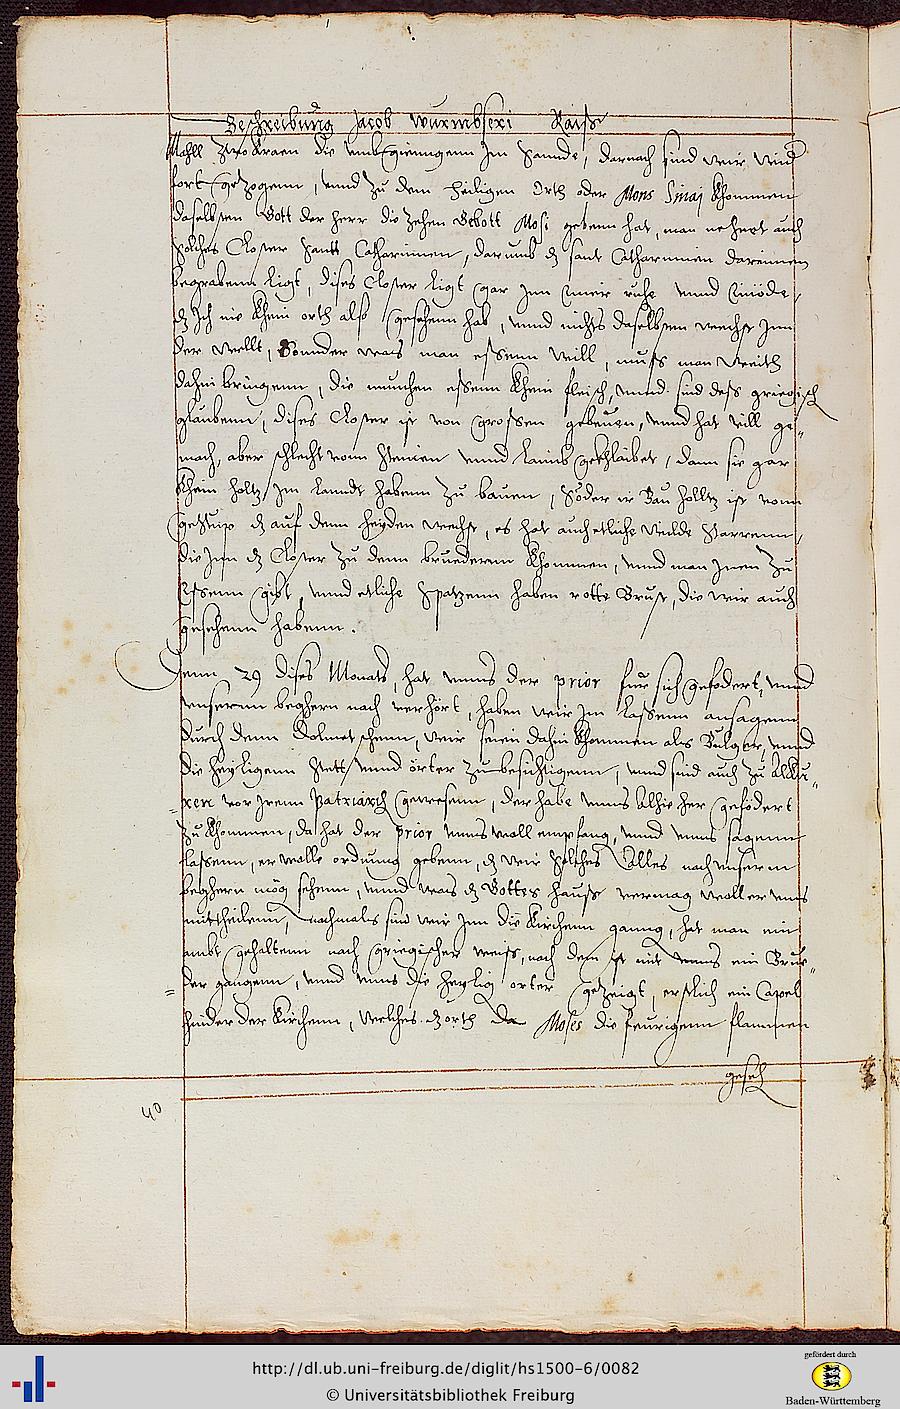 Beschreibung Jacob Wurmbseri Raiß
Mahll zwo Kraen die umbgienngenn Im Sannde, darnach sind wir
fort gezogenn, unnd zu dem heiligen Orth oder Mons Sinaj khommen
daselbsten Gott der herr die zehen Gebott Mosi gebenn hat, man nehnet auch
solches Closter Santt Catharinnen, darumb dz sant Catharinnen darinnen
begrabenn ligt, dises Closter ligt gar Inn einer ruhe unnd einöde,
dz Ich nie khein orth also gesehenn hab, unnd nichts daselbsten wechst Inn
der wellt, Sonnder was man essenn will, muss man weith
dahin bringenn, die munchen essenn khein fleisch, unnd sind dess griegisch
glaubenn, dises Closter ist von grossen gebeuen, unnd hat vill ge=
mach, aber schlecht vonn Steinen unnd Laimb gekhleibet, dann sie gar
khein holtz Im Lanndt habenn zu bauen, Soder ir Bau holltz ist vonn
dz auf denn heyden wechst, es hat auch etliche wilde
die Inn dz Closter zu denn bruedernn khommen, unnd man Inen zu
Essenn gibt, unnd etliche Spatzenn haben rotte Brust, die wir auch
gesehenn habenn.
Denn 29 dises Monats, hat unns der prior fur sich gefodert, unnd
unserm beghern nach verhört, haben wir Im lassenn ansagenn
durch denn Dolmetschenn, wir seien dahin khommen als Bulger, unnd
die heyligenn Stett unnd örter zu besichtigenn, unnd sind auch zu Alkei=
=ren vor Irenn Patriarch gewesenn, der habe unns Alhie her gefödert
zu khommen, da hat der prior unns woll empfang, unnd unns sagenn
lassenn, er wolle ordnung gebenn, dz wir solches Alles nach unserm
beghern mög sehenn, unnd was dz Gottes hauß vermag woll er uns
mittheilenn, nachmals sind wir Inn die Kirchenn ganng, hat man ein
ambt gehaltenn nach griegischer weiss, nach dem ist mit unns ein Brue=
=der gangenn, unnd uns die heylig orter gezeigt, erstlich ein Capel
hinder der Kirchenn, welches dz orth da Moses die feurigenn flammen
geseh
40
http://dl.ub.uni-freiburg.de/diglit/hs1500-6/0082
© Universitätsbibliothek Freiburg
gefördert durch
Baden-Württemberg